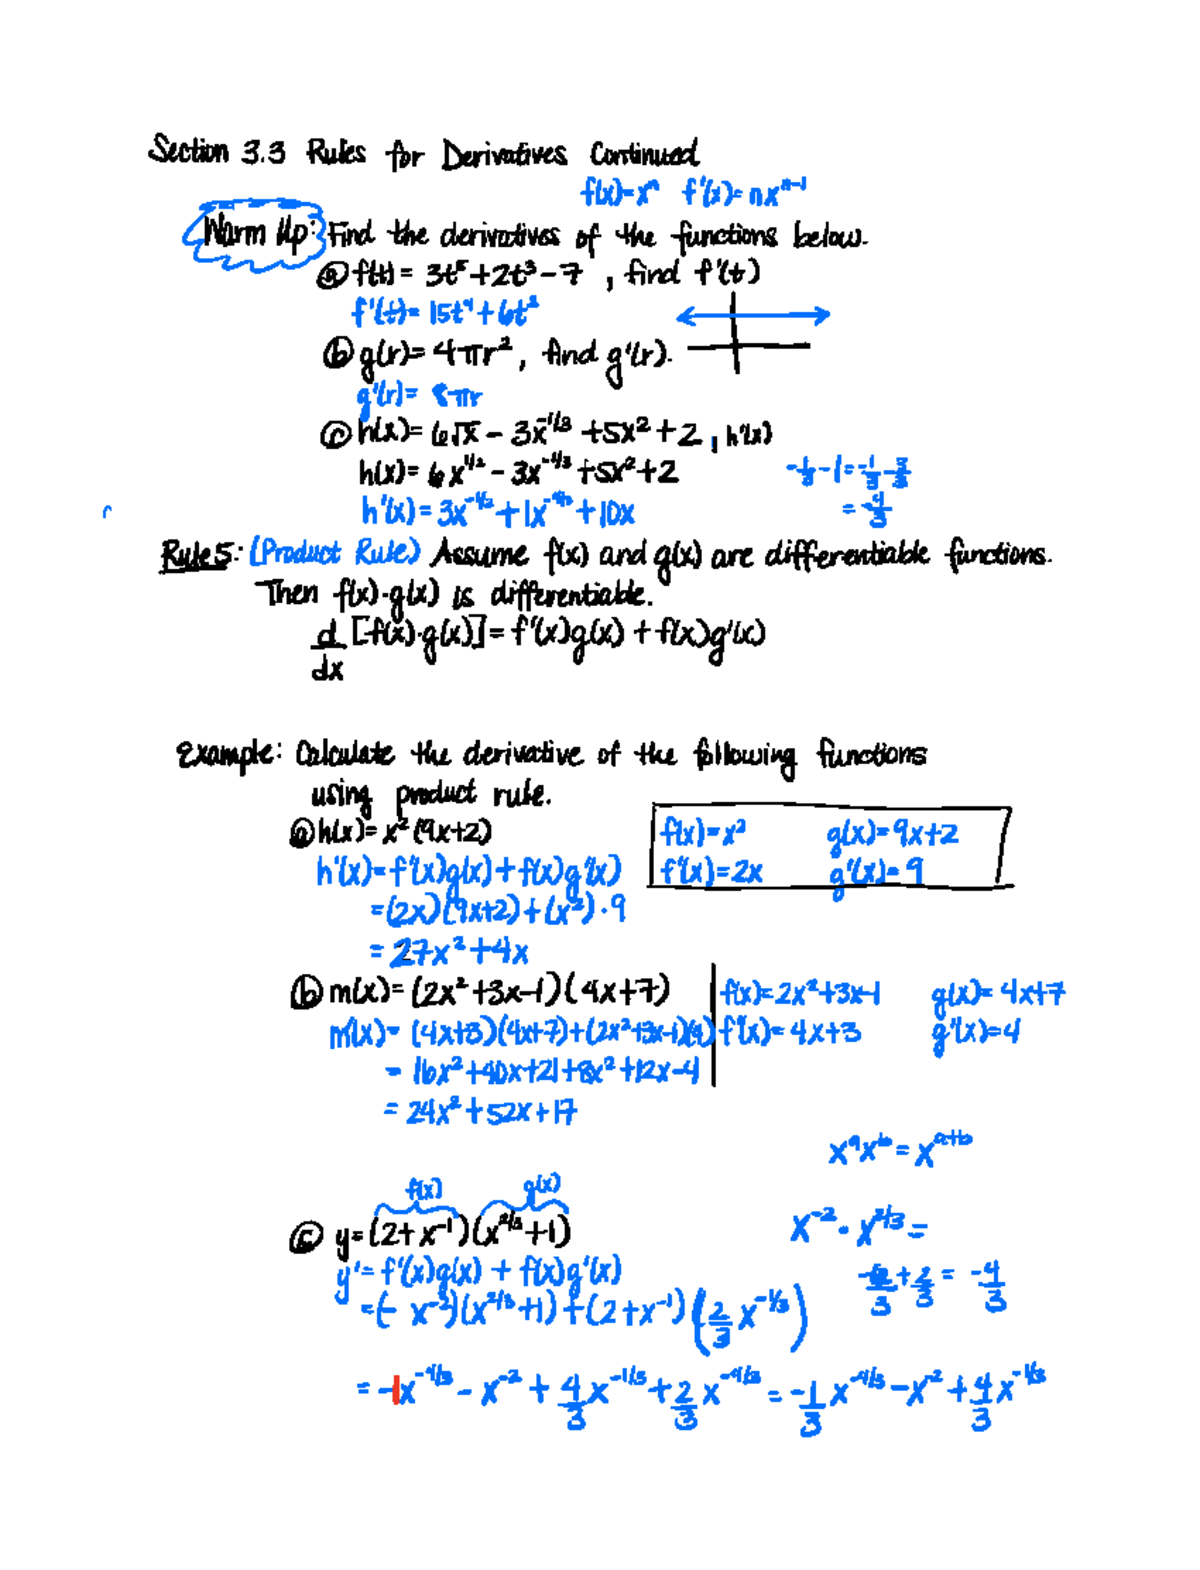 Section 3.3 Rules for Derivatives Continued
f(x)=xⁿ f'(x)=nxⁿ⁻¹
Warm Up: Find the derivatives of the functions below.
ⓐ f(t) = 3t⁵+2t³-7 , find f'(t)
f'(t)= 15t⁴+6t²
ⓑ g(r)= 4πr², find g'(r).
g'(r)= 8πr
ⓒ h(x)= 6√x - 3x^{-1/3} +5x²+2 , h'(x)
h(x)= 6x^{1/2} - 3x^{-1/3} +5x²+2
-1/3 - 1 = -1/3 - 3/3
h'(x) = 3x^{-1/2} + 1x^{-4/3} + 10x
= -4/3
Rule 5: (Product Rule) Assume f(x) and g(x) are differentiable functions.
Then f(x)·g(x) is differentiable.
d/dx [f(x)·g(x)] = f'(x)g(x) + f(x)g'(x)
Example: Calculate the derivative of the following functions
using product rule.
ⓐ h(x)= x²(9x+2)
f(x)=x² g(x)=9x+2
f'(x)=2x g'(x)=9
h'(x)=f'(x)g(x)+f(x)g'(x)
=(2x)(9x+2)+(x²)·9
= 27x²+4x
ⓑ m(x)=(2x²+3x-1)(4x+7)
f(x)=2x²+3x-1 g(x)=4x+7
m'(x)= (4x+3)(4x+7)+(2x²+3x-1)(4)
f'(x)=4x+3 g'(x)=4
= 16x²+40x+21+8x²+12x-4
= 24x²+52x+17
xᵃxᵇ=x^{a+b}
f(x) g(x)
ⓒ y=(2+x⁻¹)(x^{2/3}+1)
x⁻²·x^{2/3}=
y'=f'(x)g(x) + f(x)g'(x)
-6/3+2/3 = -4/3
=(- x⁻²)(x^{2/3}+1)+(2+x⁻¹)(2/3 x^{-1/3})
= -1x^{-4/3} - x⁻² + 4/3 x^{-1/3} + 2/3 x^{-4/3} = -1/3 x^{-4/3} - x⁻² + 4/3 x^{-1/3}